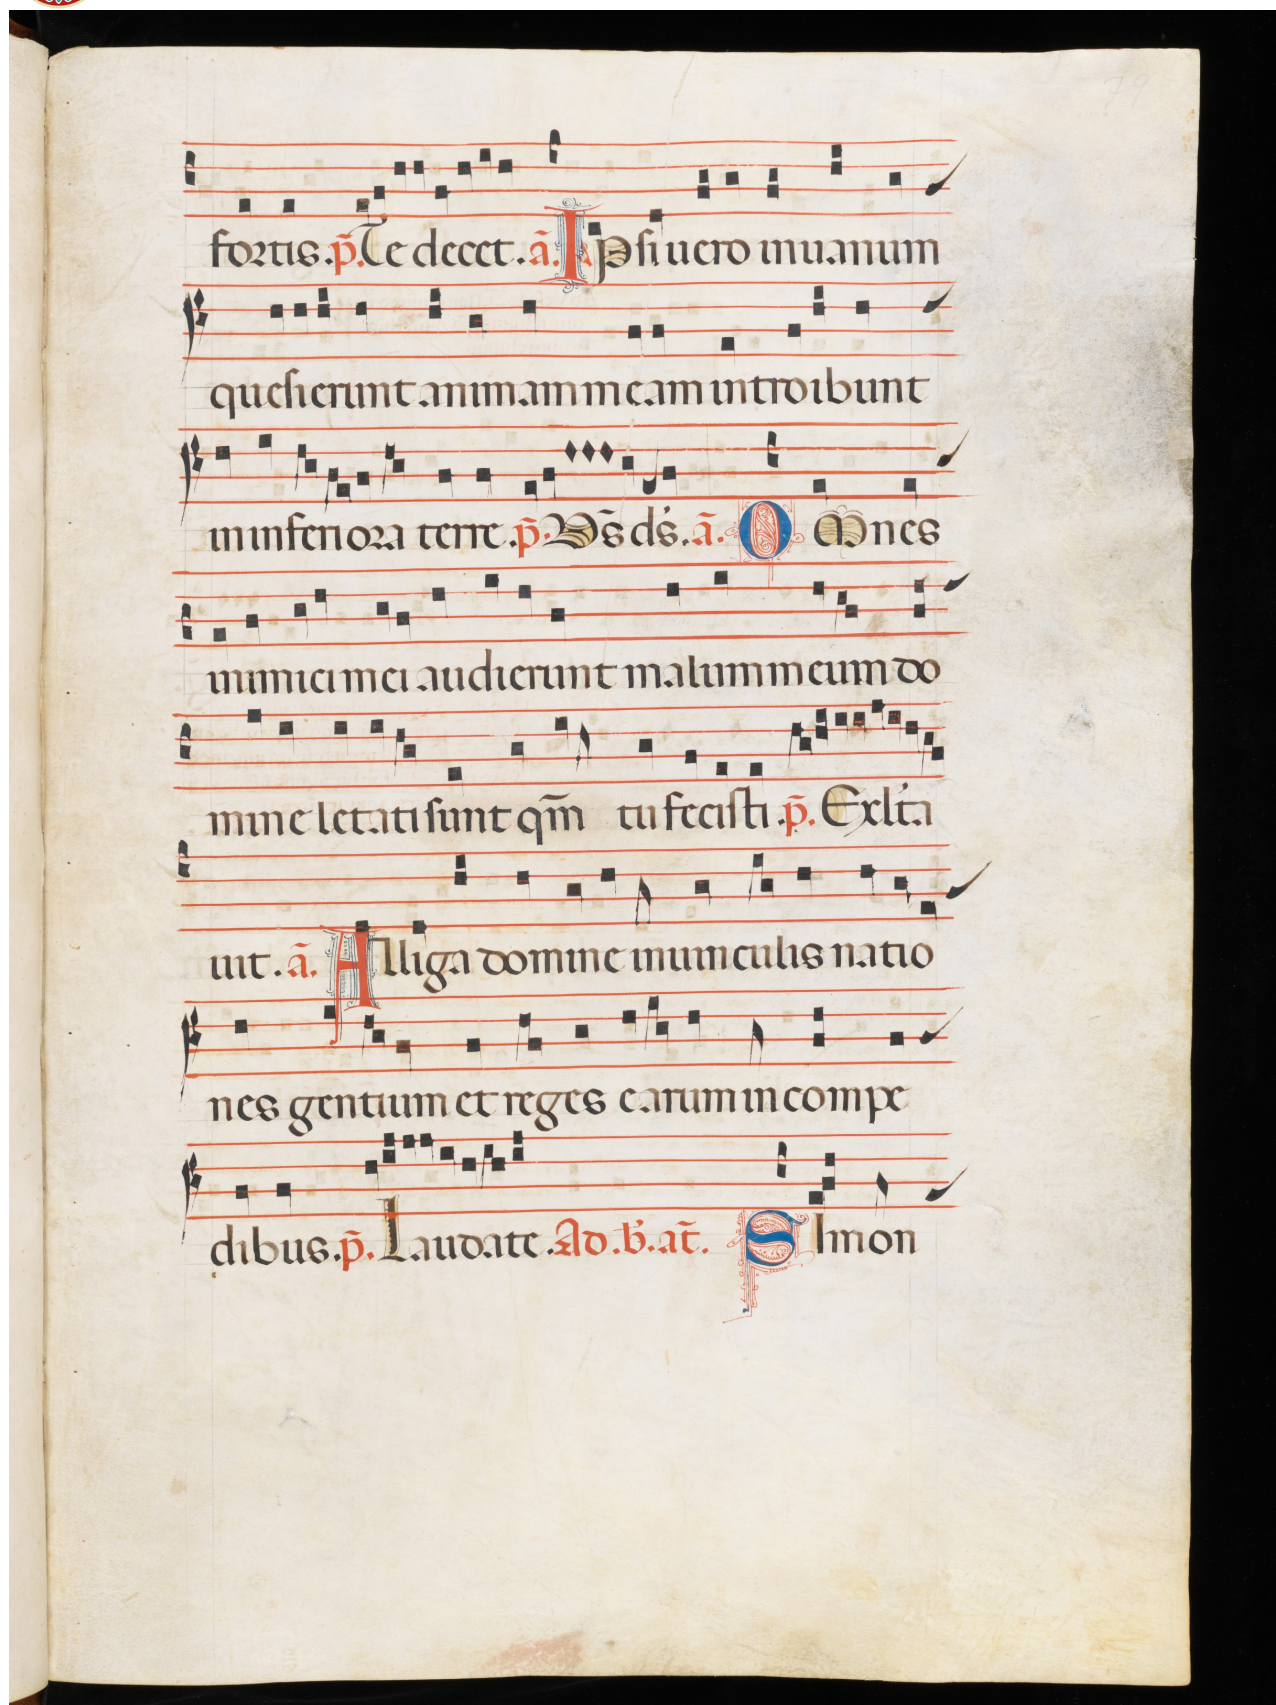 79
fortis. p̄. Te decet. ā. Ipsi uero inuanum
quesierunt animam meam introibunt
in inferiora terre. p̄. Ds̄ ds̄. ā. Omnes
inimici mei audierunt malum meum do
mine letati sunt qm̄ tu fecisti. p̄. Exl'ta
uit. ā. Alliga domine inuinculis natio
nes gentium et reges earum in compe
dibus. p̄. Laudate. Ad. b'. at̄. Simon